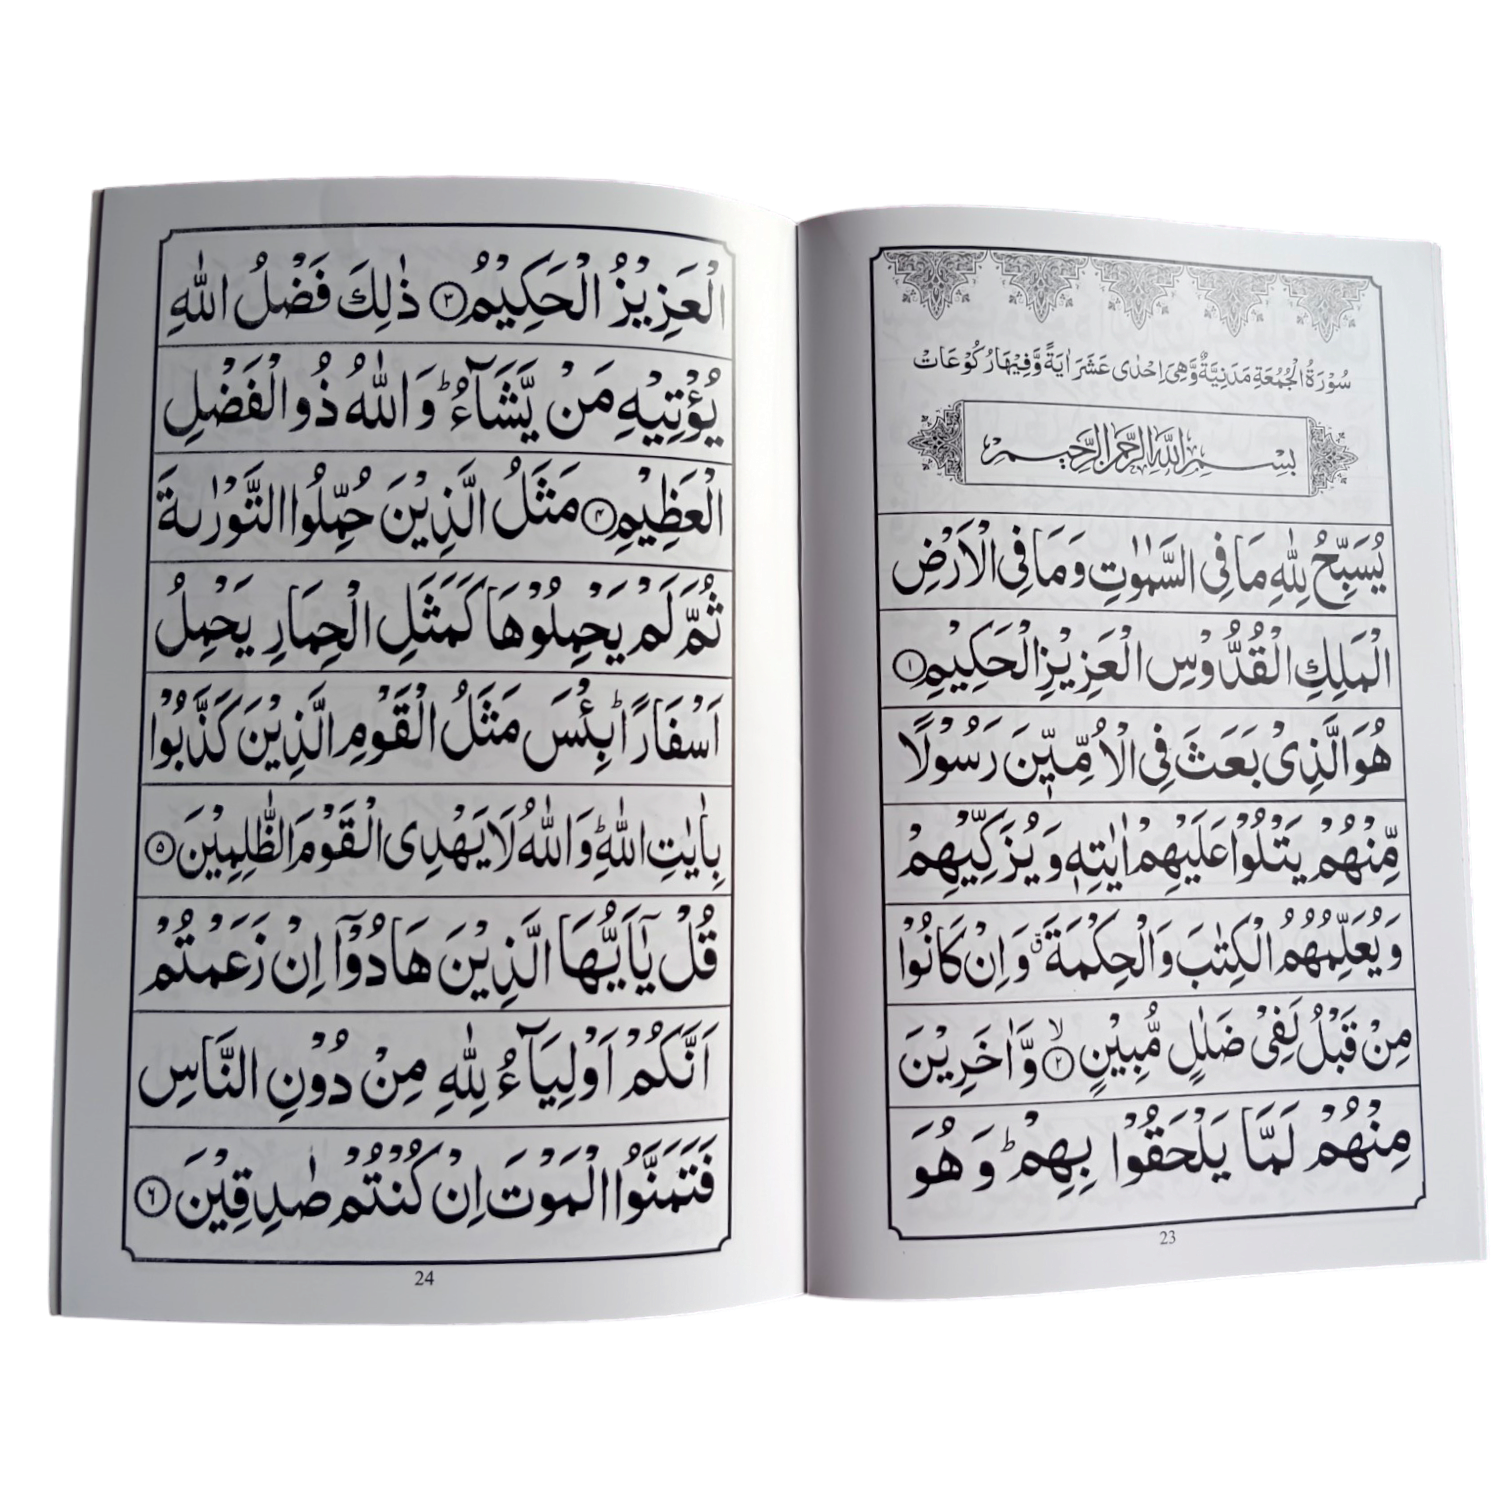 سُوْرَةُ الْجُمُعَةِ مَدَنِيَّةٌ وَّهِیَ اِحْدٰی عَشَرَ اٰیَةً وَّفِیْهَا رُكُوْعَاتْ
بِسْمِ اللهِ الرَّحْمٰنِ الرَّحِيْمِ
يُسَبِّحُ لِلّٰهِ مَا فِی السَّمٰوٰتِ وَ مَا فِی الْاَرْضِ
الْمَلِكِ الْقُدُّوْسِ الْعَزِيْزِ الْحَكِيْمِ ۱
هُوَ الَّذِیْ بَعَثَ فِی الْاُمِّيّٖنَ رَسُوْلًا
مِّنْهُمْ يَتْلُوْا عَلَيْهِمْ اٰيٰتِهٖ وَ يُزَكِّيْهِمْ
وَ يُعَلِّمُهُمُ الْكِتٰبَ وَ الْحِكْمَةَ ۗ وَ اِنْ كَانُوْا
مِنْ قَبْلُ لَفِیْ ضَلٰلٍ مُّبِيْنٍ ۲ۙ وَّ اٰخَرِيْنَ
مِنْهُمْ لَمَّا يَلْحَقُوْا بِهِمْ ؕ وَ هُوَ
23
الْعَزِيْزُ الْحَكِيْمُ ۳ ذٰلِكَ فَضْلُ اللّٰهِ
يُؤْتِيْهِ مَنْ يَّشَآءُ ؕ وَ اللّٰهُ ذُو الْفَضْلِ
الْعَظِيْمِ ۴ مَثَلُ الَّذِيْنَ حُمِّلُوا التَّوْرٰىةَ
ثُمَّ لَمْ يَحْمِلُوْهَا كَمَثَلِ الْحِمَارِ يَحْمِلُ
اَسْفَارًا ؕ بِئْسَ مَثَلُ الْقَوْمِ الَّذِيْنَ كَذَّبُوْا
بِاٰيٰتِ اللّٰهِ ؕ وَ اللّٰهُ لَا يَهْدِی الْقَوْمَ الظّٰلِمِيْنَ ۵
قُلْ يٰۤاَيُّهَا الَّذِيْنَ هَادُوْۤا اِنْ زَعَمْتُمْ
اَنَّكُمْ اَوْلِيَآءُ لِلّٰهِ مِنْ دُوْنِ النَّاسِ
فَتَمَنَّوُا الْمَوْتَ اِنْ كُنْتُمْ صٰدِقِيْنَ ۶
24